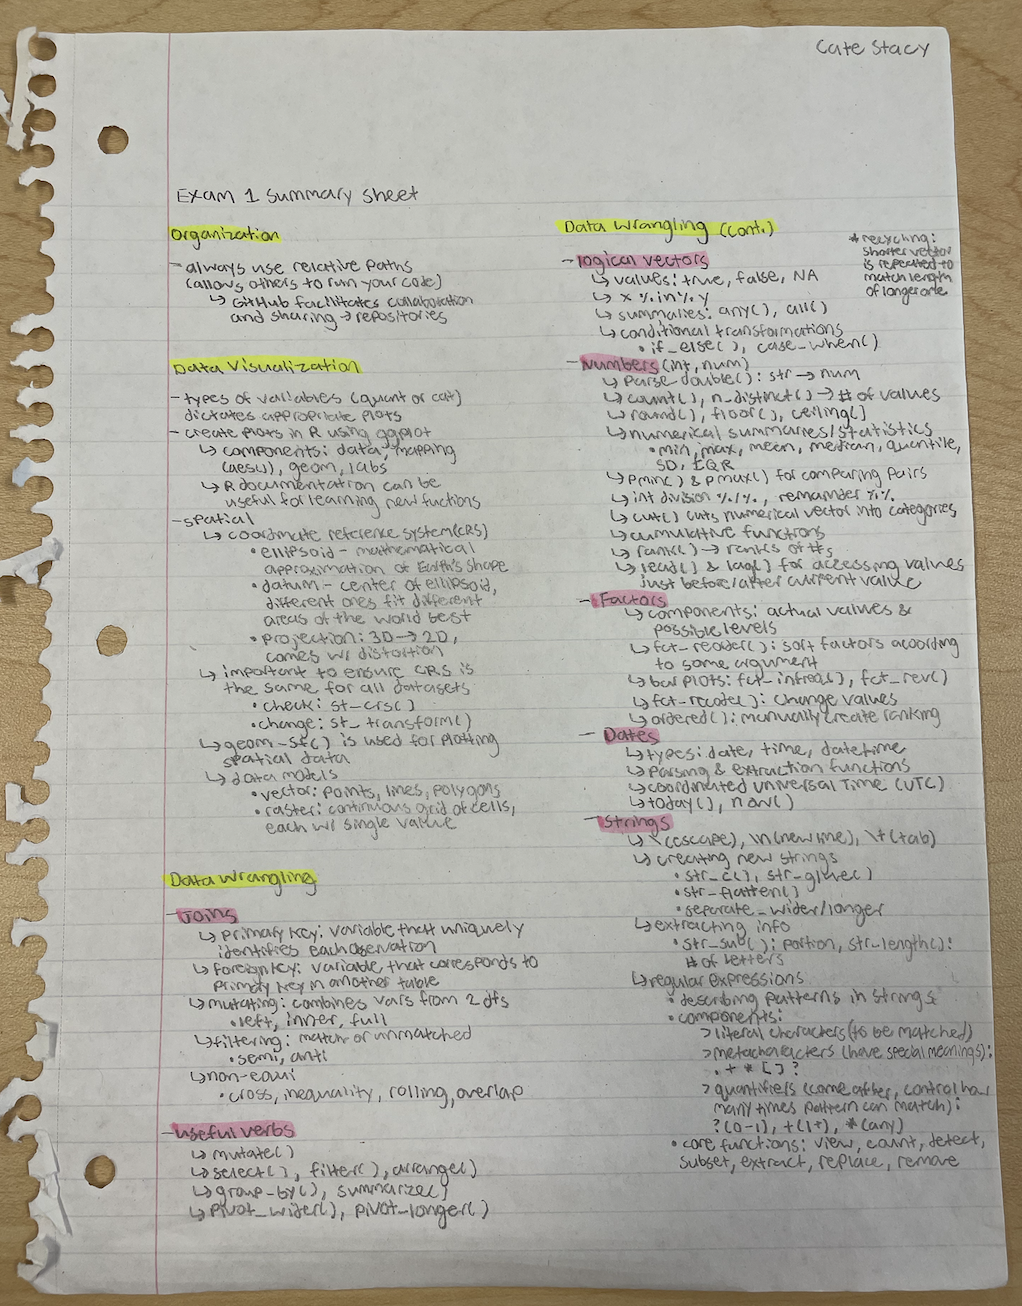 Cate Stacy
Exam 1 Summary Sheet
Organization
- always use relative paths
(allows others to run your code)
↳ GitHub facilitates collaboration
and sharing → repositories
Data Visualization
- types of variables (quant or cat)
dictates appropriate plots
- create plots in R using ggplot
↳ components: data, mapping
(aes()), geom, labs
↳ R documentation can be
useful for learning new fuctions
- spatial
↳ coordinate reference system (CRS)
• ellipsoid - mathematical
approximation of Earth's shape
• datum - center of ellipsoid,
different ones fit different
areas of the world best
• projection: 3D → 2D,
comes w/ distortion
↳ important to ensure CRS is
the same for all datasets
• check: st_crs()
• change: st_transform()
↳ geom_sf() is used for plotting
spatial data
↳ data models
• vector: points, lines, polygons
• raster: continuous grid of cells,
each w/ single value
Data Wrangling
- Joins
↳ primary key: variable that uniquely
identifies each observation
↳ foreign key: variable that corresponds to
primary key in another table
↳ mutating: combines vars from 2 dfs
• left, inner, full
↳ filtering: match or unmatched
• semi, anti
↳ non-equi
• cross, inequality, rolling, overlap
- useful verbs
↳ mutate()
↳ select(), filter(), arrange()
↳ group_by(), summarize()
↳ pivot_wider(), pivot_longer()
Data Wrangling (cont.)
* recycling:
shorter vector
is repeated to
match length
of longer one
- logical vectors
↳ values: true, false, NA
↳ x %in% y
↳ summaries: any(), all()
↳ conditional transformations
• if_else(), case_when()
- Numbers (int, num)
↳ parse_double(): str → num
↳ count(), n_distinct() → # of values
↳ round(), floor(), ceiling()
↳ numerical summaries/statistics
• min, max, mean, median, quantile,
SD, IQR
↳ pmin() & pmax() for comparing pairs
↳ int division %/%, remainder %%
↳ cut() cuts numerical vector into categories
↳ cumulative functions
↳ rank() → ranks of #s
↳ lead() & lag() for accessing values
just before/after current value
- Factors
↳ components: actual values &
possible levels
↳ fct_reorder(): sort factors acording
to some argument
↳ bar plots: fct_infreq(), fct_rev()
↳ fct_recode(): change values
↳ ordered(): manually create ranking
- Dates
↳ types: date, time, datetime
↳ parsing & extraction functions
↳ coordinated Universal Time (UTC)
↳ today(), now()
- Strings
↳ \ (escape), \n (new line), \t (tab)
↳ creating new strings
• str_c(), str_glue()
• str_flatten()
• separate_wider/longer
↳ extracting info
• str_sub(): portion, str_length():
# of letters
↳ regular expressions
• describing patterns in strings
• components:
> literal characters (to be matched)
> metacharacters (have special meanings):
. + * [ ] ?
> quantifiers (come after, control how
many times pattern can match):
? (0-1), + (1+), * (any)
• core functions: view, count, detect,
subset, extract, replace, remove